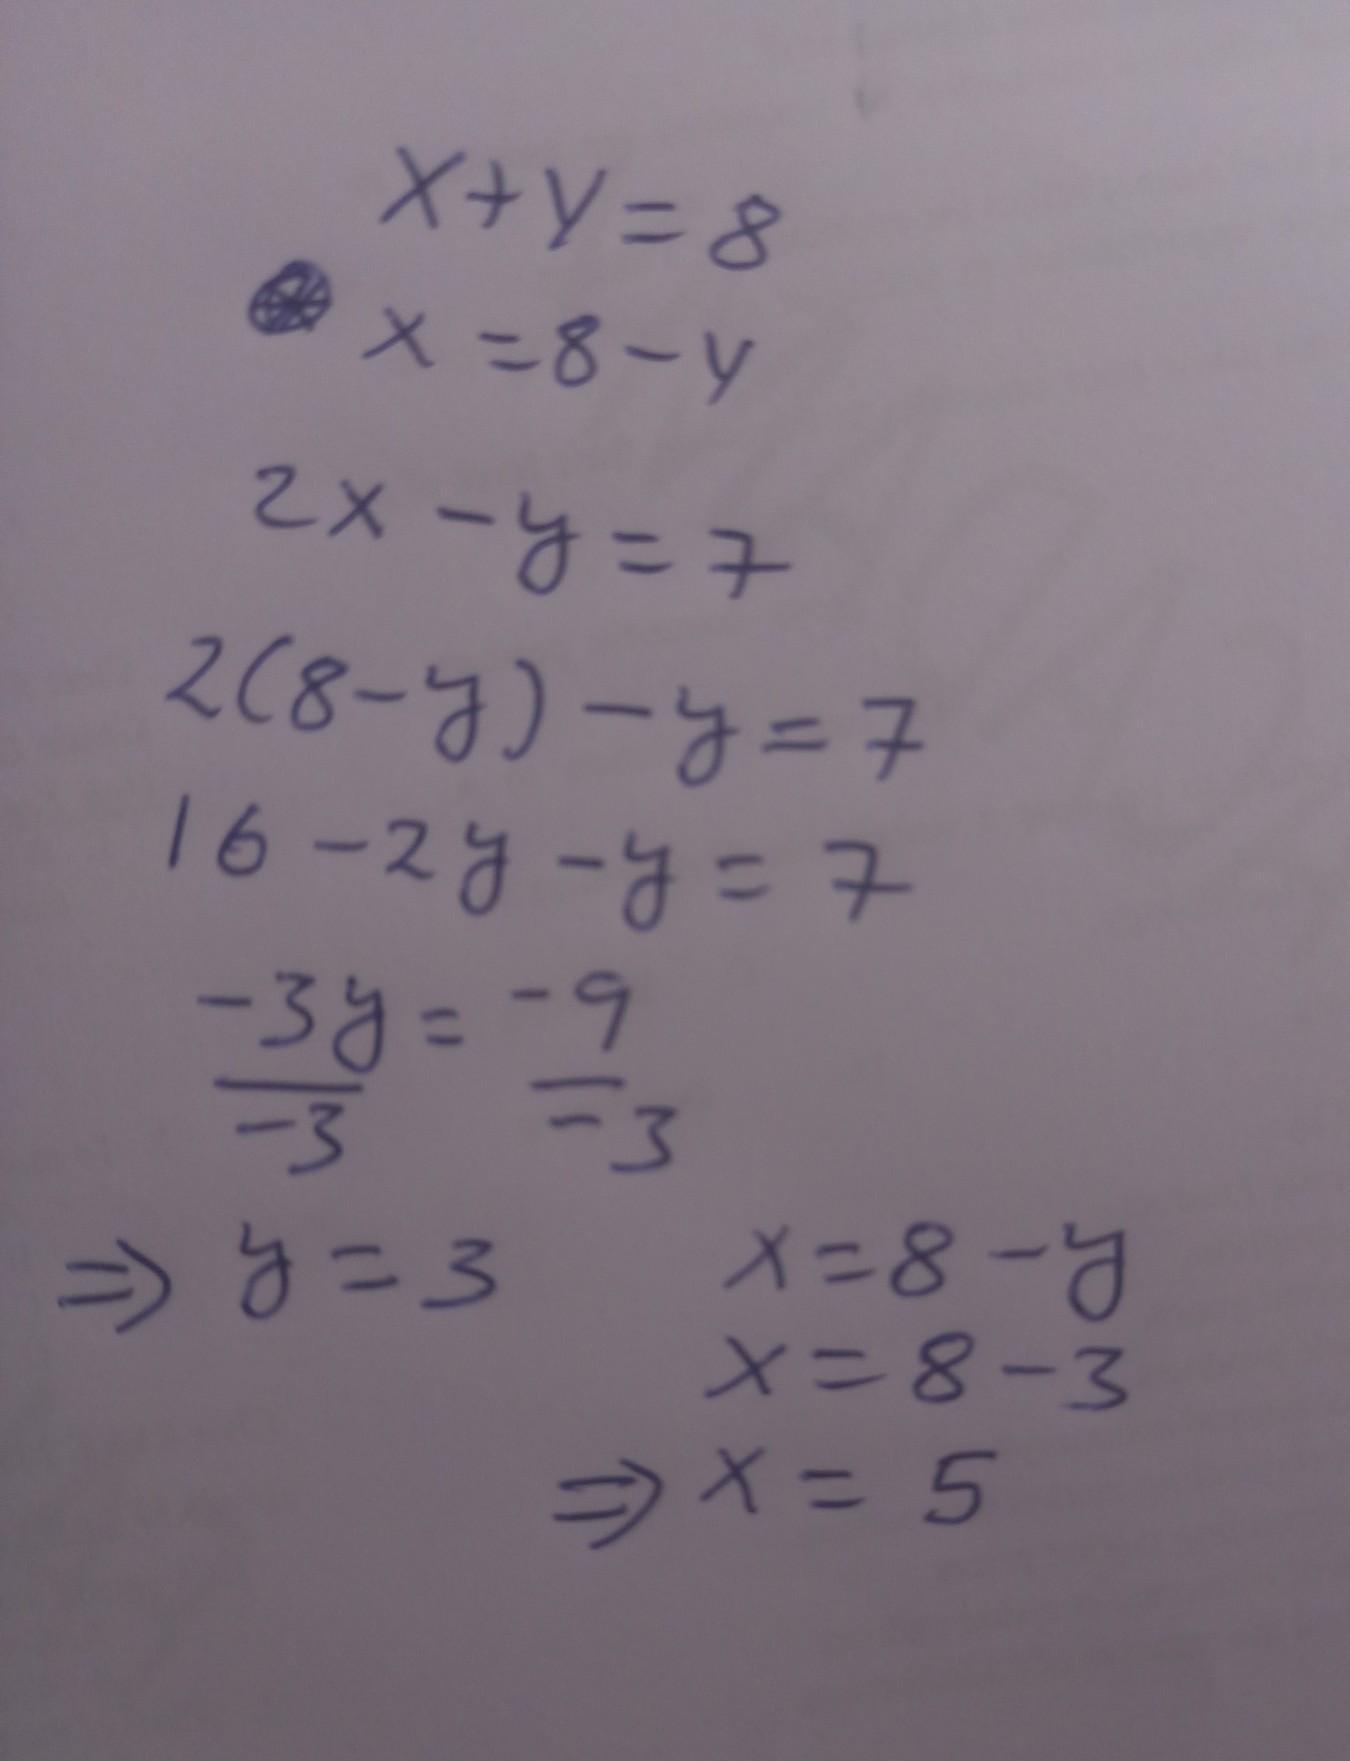 X+Y=8
x=8-y
2x-y=7
2(8-y)-y=7
16-2y-y=7
-3y=-9
-3 -3
⇒ y=3
x=8-y
x=8-3
⇒ x=5